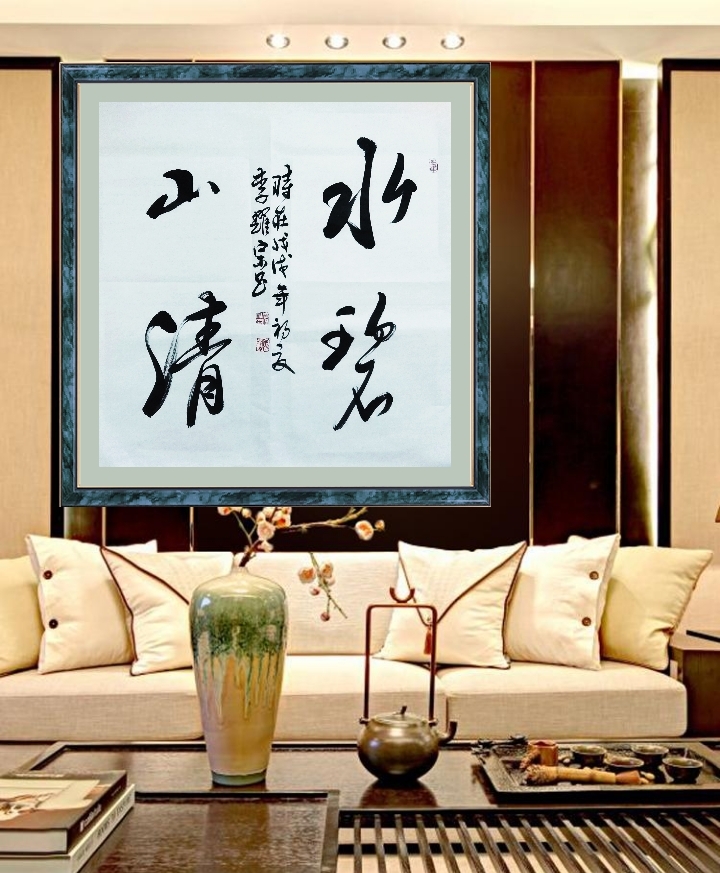 水碧
時在戊戌年初夏
李耀宗书
山清